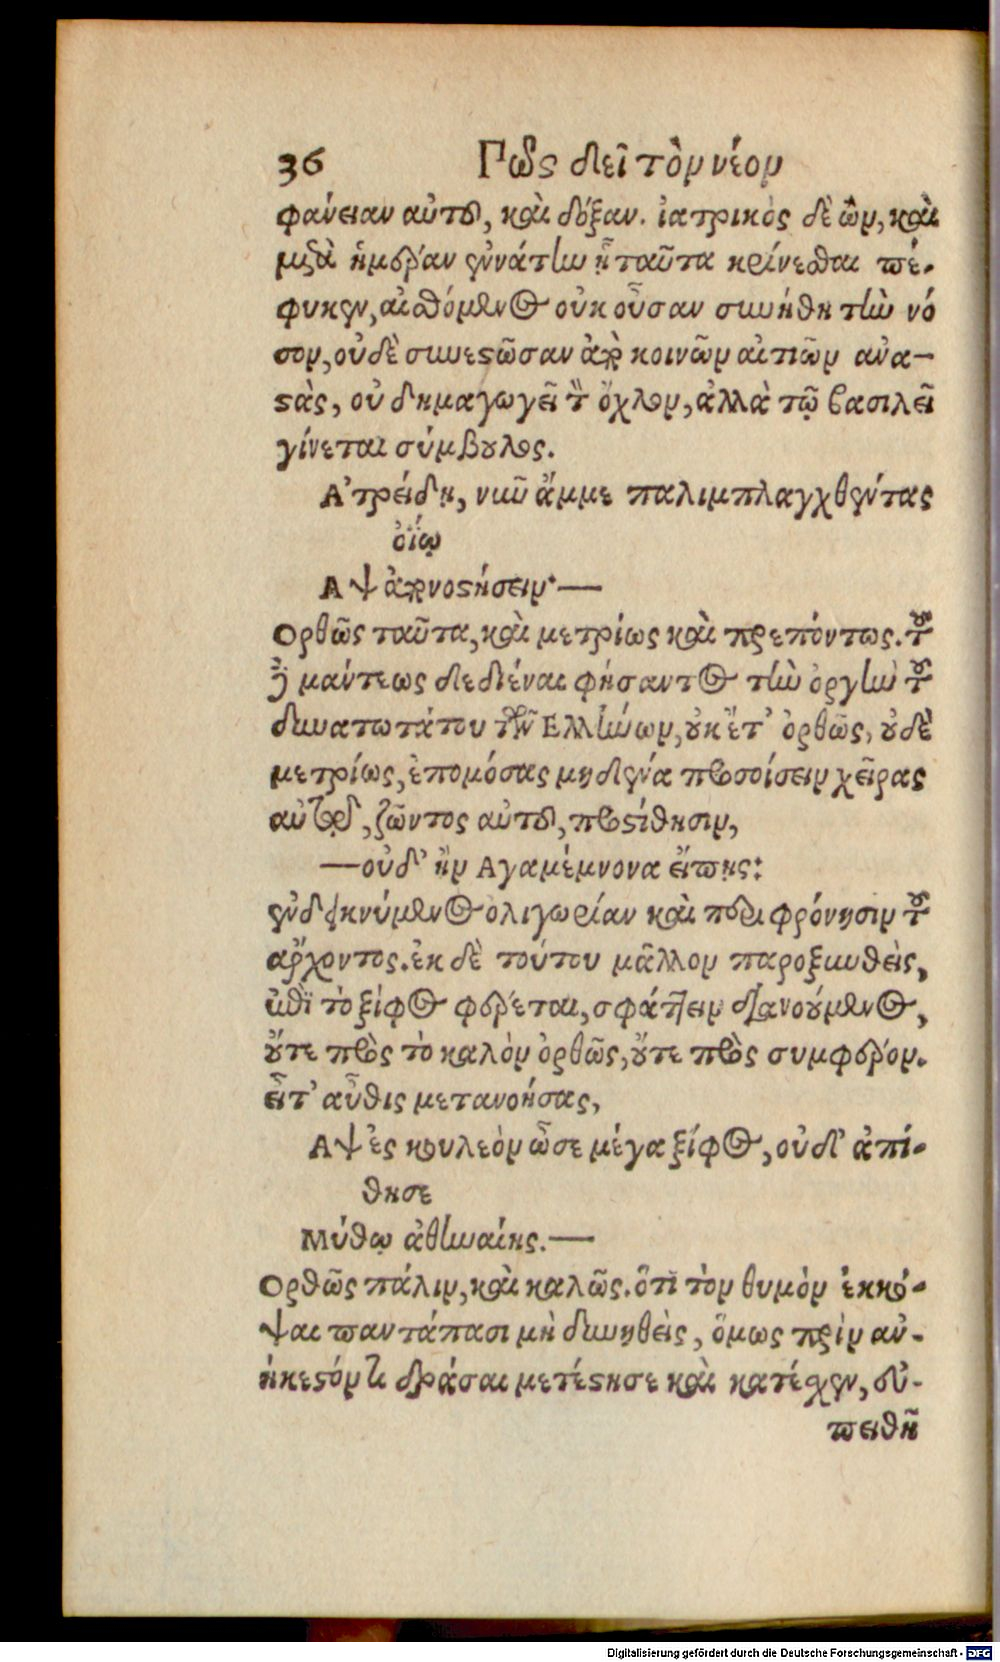 36 Πῶς δεῖ τὸν νέον
φάνειαν αὐτοῦ, καὶ δόξαν. ἰατρικὸς δὲ ὢν, καὶ
μεθ' ἡμέραν ἐννάτην ᾗ ταῦτα κρίνεσθαι πέ-
φυκεν, αἰσθόμενος οὐκ οὖσαν συνήθη τὴν νό
σον, οὐδὲ συνεστῶσαν ἀπὸ κοινῶν αἰτιῶν ἀνα-
στὰς, οὐ δημαγωγεῖ τὸν ὄχλον, ἀλλὰ τῷ βασιλεῖ
γίνεται σύμβουλος.
Ἀτρείδη, νῦν ἄμμε παλιμπλαγχθέντας
ὀΐω
Αψ ἀπονοστήσειν·—
Ορθῶς ταῦτα, καὶ μετρίως καὶ πρεπόντως. τοῦ
δὲ μάντεως δεδιέναι φήσαντος τὴν ὀργὴν τοῦ
δυνατωτάτου τῶν Ελλήνων, οὐκέτ' ὀρθῶς, οὐδὲ
μετρίως, ἐπομόσας μηδένα προσοίσειν χεῖρας
αὐτῷ, ζῶντος αὐτοῦ, προστίθησιν,
—οὐδ' ἢν Αγαμέμνονα εἴπῃς:
ἐνδεικνύμενος ὀλιγωρίαν καὶ περιφρόνησιν τοῦ
ἄρχοντος. ἐκ δὲ τούτου μᾶλλον παροξυνθεὶς,
ἐπὶ τὸ ξίφος φέρεται, σφάττειν διανοούμενος,
οὔτε πρὸς τὸ καλὸν ὀρθῶς, οὔτε πρὸς συμφέρον.
εἶτ' αὖθις μετανοήσας,
Αψ ἐς κουλεὸν ὦσε μέγα ξίφος, οὐδ' ἀπί-
θησε
Μύθῳ ἀθηναίης.—
Ορθῶς πάλιν, καὶ καλῶς. ὅτι τὸν θυμὸν ἐκκό-
ψαι παντάπασι μὴ δυνηθεὶς, ὅμως πρὶν ἀν-
ήκεστόν τι δρᾶσαι μετέστησε καὶ κατέσχεν, εὐ-
πειθῆ
Digitalisierung gefördert durch die Deutsche Forschungsgemeinschaft - DFG